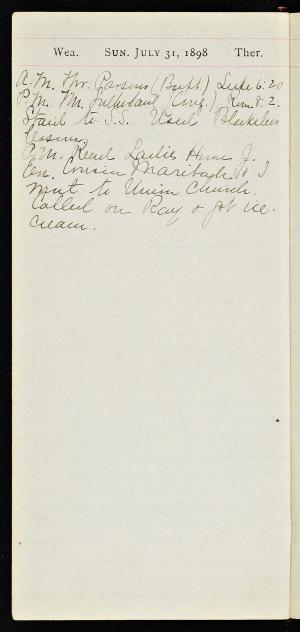 Wea. SUN. JULY 31, 1898 Ther.
A.M. Mr. Parsons (Bapt) Luke 6:20
P.M. Mr. (Cong.) Rom. 8:2.
Staid to S.S. Used Blakeslee
lesson.
P.M. Read Ladies Home J.
Eve. Cousin & I
went to Union Church.
Called on Ray & got ice-
cream.